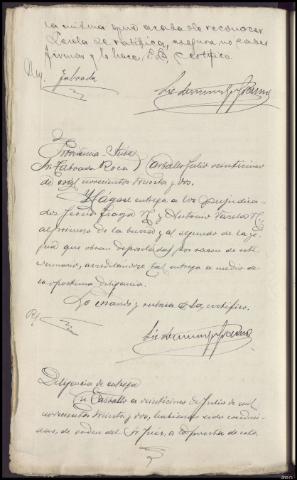 la misma que acaba de reconocer
leida se ratifica, asegura no saber
firmar y lo hace S.S. Certifico
Taboada
Providencia Juez
Sr. Taboada Roca } Carballo Julio veinticinco
de mil novecientos treinta y dos.
Hágase entrega a los perjudica-
dos Fraga y Antonio Varela
al primero de la burra y al segundo de la
que obran depositadas por razon de este
sumario, acreditandose tal entrega a medio de
la oportuna diligencia.
Lo mandó y rubrica S.Sa, certifico.
Diligencia de entrega
En Carballo a veinticinco de Julio de mil
novecientos treinta y dos, habiendo sido
de orden del Sr Juez, a